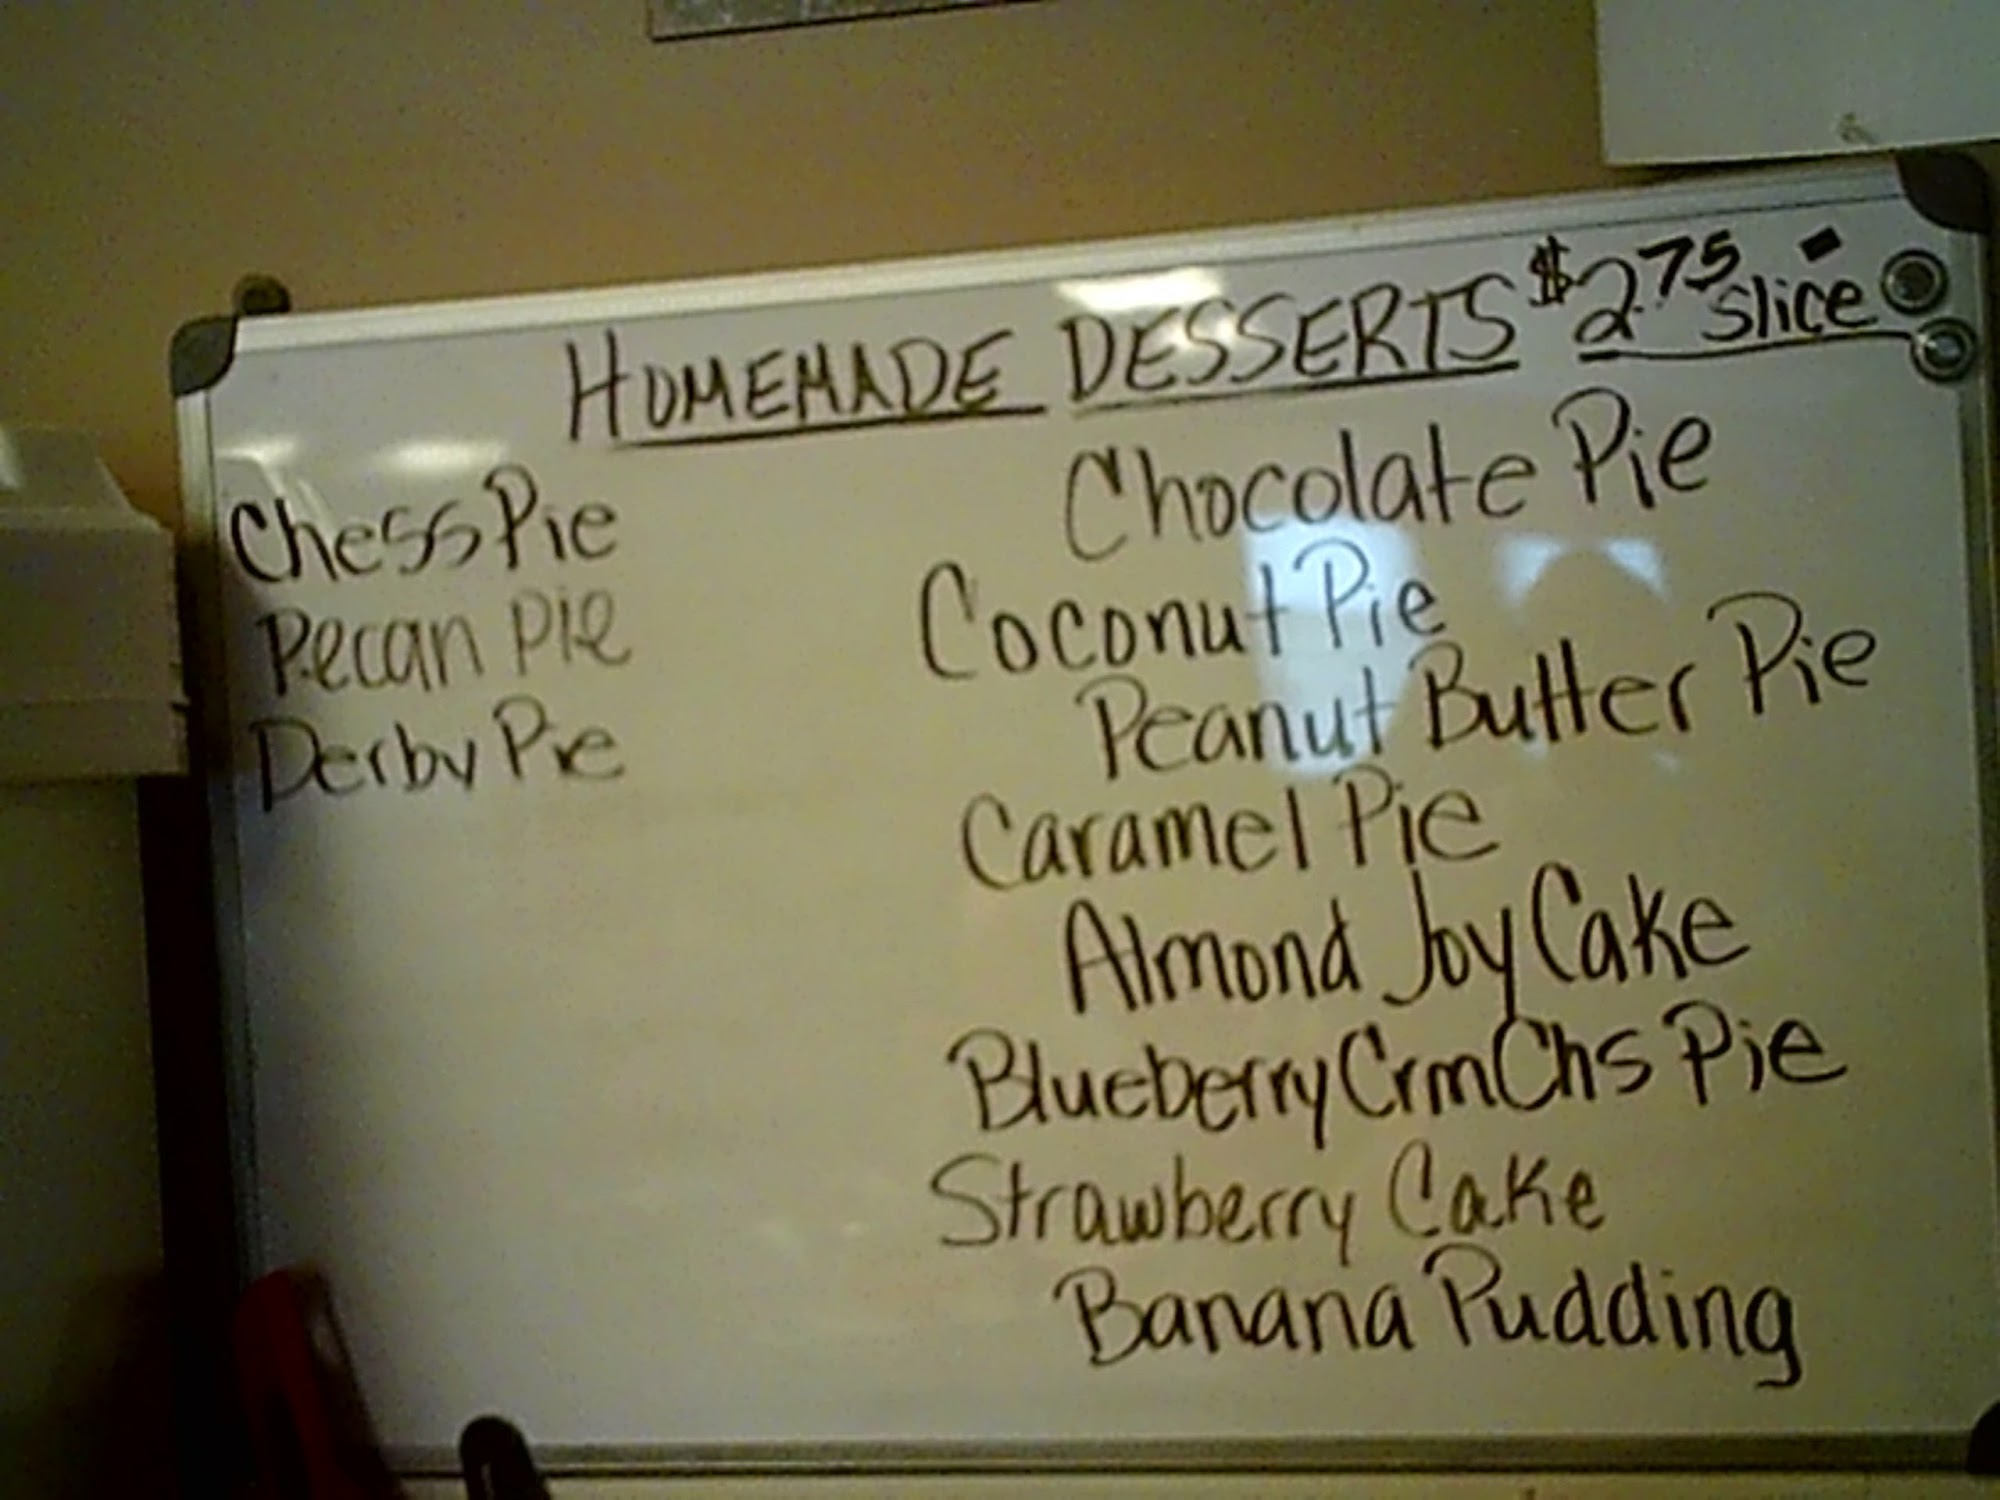 HOMEMADE DESSERTS $2.75 slice
Chess Pie
Pecan Pie
Derby Pie
Chocolate Pie
Coconut Pie
Peanut Butter Pie
Caramel Pie
Almond Joy Cake
Blueberry Crm Chs Pie
Strawberry Cake
Banana Pudding